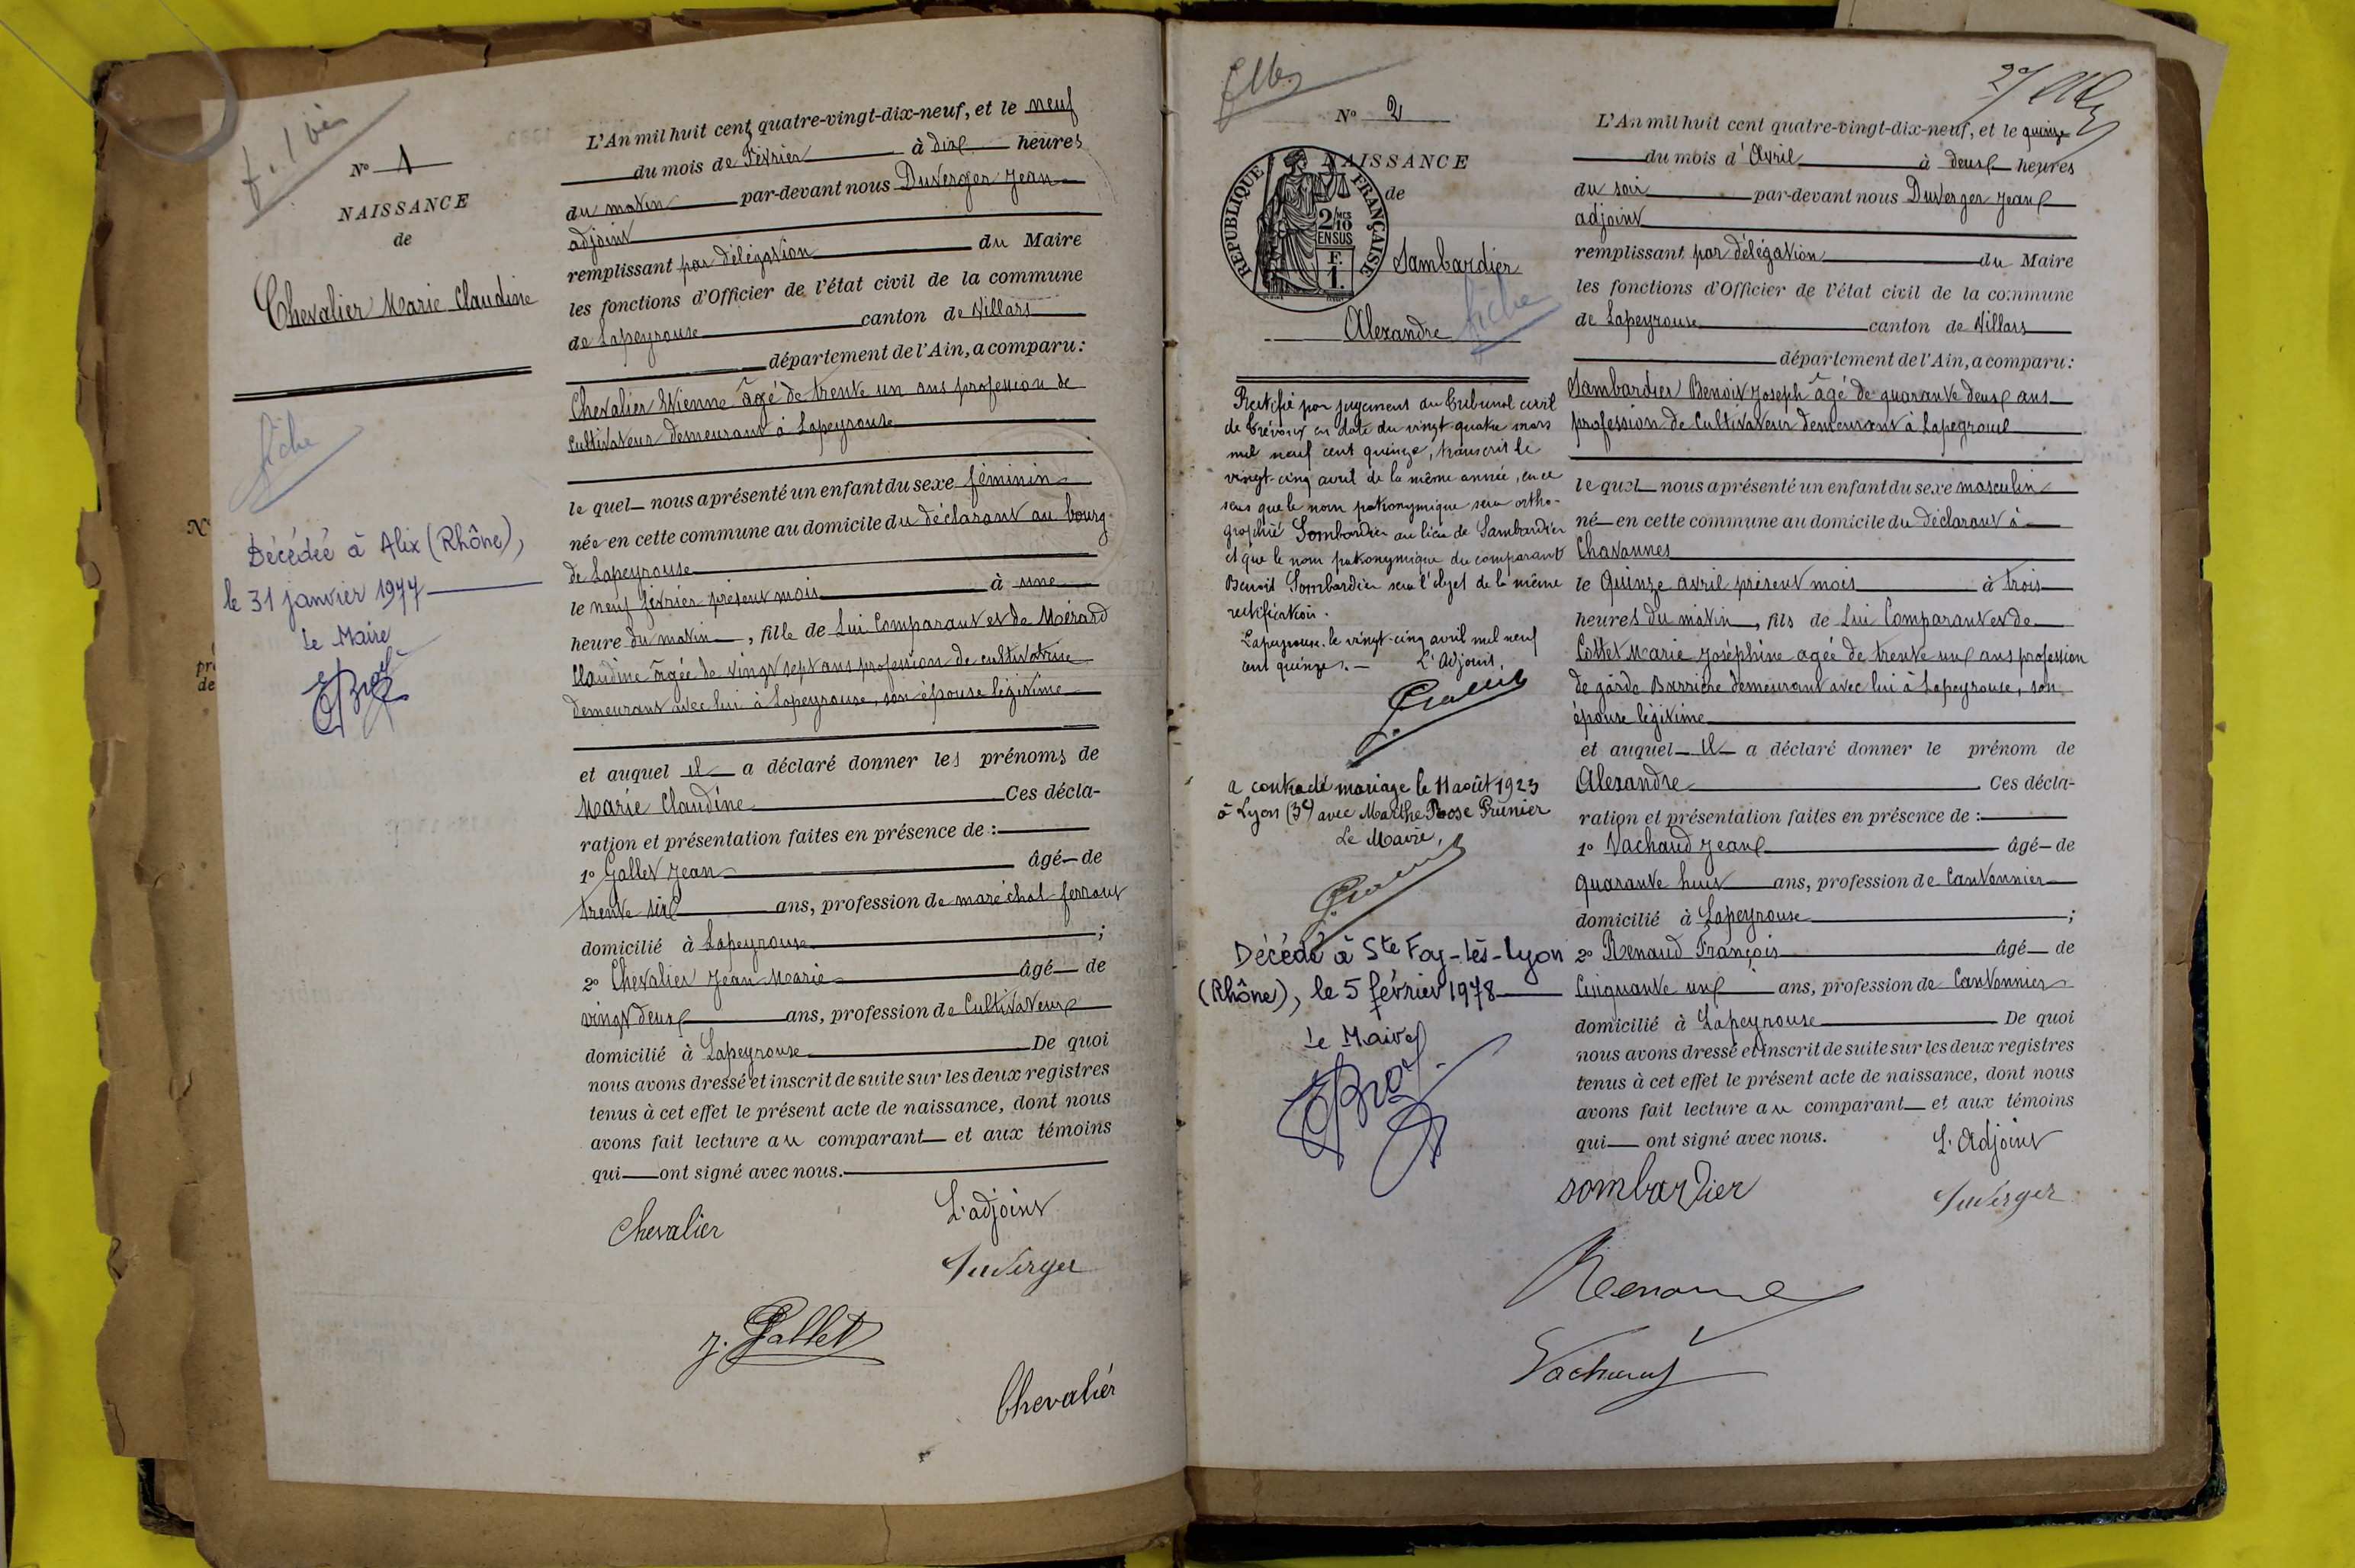 f. 1 bis
N° 1
NAISSANCE
de
Chevalier Marie Claudine
fiche
Décédée à Alix (Rhône),
le 31 janvier 1977
Le Maire
L'An mil huit cent quatre-vingt-dix-neuf, et le neuf
du mois de Février à dix heures
du matin par-devant nous Duverger Jean
adjoint
remplissant par délégation du Maire
les fonctions d'Officier de l'état civil de la commune
de Lapeyrouse canton de Villars
département de l'Ain, a comparu:
Chevalier Etienne âgé de trente un ans profession de
cultivateur demeurant à Lapeyrouse
le quel nous a présenté un enfant du sexe féminin
née en cette commune au domicile du déclarant au bourg
de Lapeyrouse
le neuf février présent mois à une
heure du matin, fille de Lui Comparant et de Mérard
Claudine âgée de vingt sept ans profession de cultivatrice
demeurant avec lui à Lapeyrouse, son épouse légitime
et auquel il a déclaré donner les prénoms de
Marie Claudine Ces décla-
ration et présentation faites en présence de :
1° Gallet Jean âgé de
trente six ans, profession de maréchal-ferrant
domicilié à Lapeyrouse ;
2° Chevalier Jean Marie âgé de
vingt deux ans, profession de Cultivateur
domicilié à Lapeyrouse De quoi
nous avons dressé et inscrit de suite sur les deux registres
tenus à cet effet le présent acte de naissance, dont nous
avons fait lecture au comparant et aux témoins
qui ont signé avec nous.
Chevalier
L'adjoint
Duverger
J. Gallet
Chevalier
N° 2
NAISSANCE
de
RÉPUBLIQUE FRANÇAISE
2/10
EN SUS
F.
1.
Sambardier
Alexandre
fiche
Rectifié par jugement du tribunal civil
de Trévoux en date du vingt-quatre mars
mil neuf cent quinze, transcrit le
vingt-cinq avril de la même année, en ce
sens que le nom patronymique sera ortho-
graphié Sombardier au lieu de Sambardier
et que le nom patronymique du comparant
Benoit Sombardier sera l'objet de la même
rectification.
Lapeyrouse, le vingt-cinq avril mil neuf
cent quinze. L'Adjoint,
a contracté mariage le 11 août 1923
à Lyon (3e) avec Marthe Rose Prunier
Le Maire,
Décédé à Ste Foy-lès-Lyon
(Rhône), le 5 février 1978
Le Maire
L'An mil huit cent quatre-vingt-dix-neuf, et le quinze
du mois d'Avril à deux heures
du soir par-devant nous Duverger Jean
adjoint
remplissant par délégation du Maire
les fonctions d'Officier de l'état civil de la commune
de Lapeyrouse canton de Villars
département de l'Ain, a comparu:
Sambardier Benoit Joseph âgé de quarante deux ans
profession de Cultivateur demeurant à Lapeyrouse
le quel nous a présenté un enfant du sexe masculin
né en cette commune au domicile du déclarant à
Chavannes
le Quinze avril présent mois à trois
heures du matin, fils de Lui Comparant et de
Cottet Marie Joséphine agée de trente un ans profession
de garde Barrière demeurant avec lui à Lapeyrouse, son
épouse légitime
et auquel il a déclaré donner le prénom de
Alexandre Ces décla-
ration et présentation faites en présence de :
1° Vachaud Jean âgé de
quarante huit ans, profession de Cantonnier
domicilié à Lapeyrouse ;
2° Renaud François âgé de
Cinquante un ans, profession de Cantonnier
domicilié à Lapeyrouse De quoi
nous avons dressé et inscrit de suite sur les deux registres
tenus à cet effet le présent acte de naissance, dont nous
avons fait lecture au comparant et aux témoins
qui ont signé avec nous.
L'Adjoint
sombardier
Duverger
Renaud
Vachaud